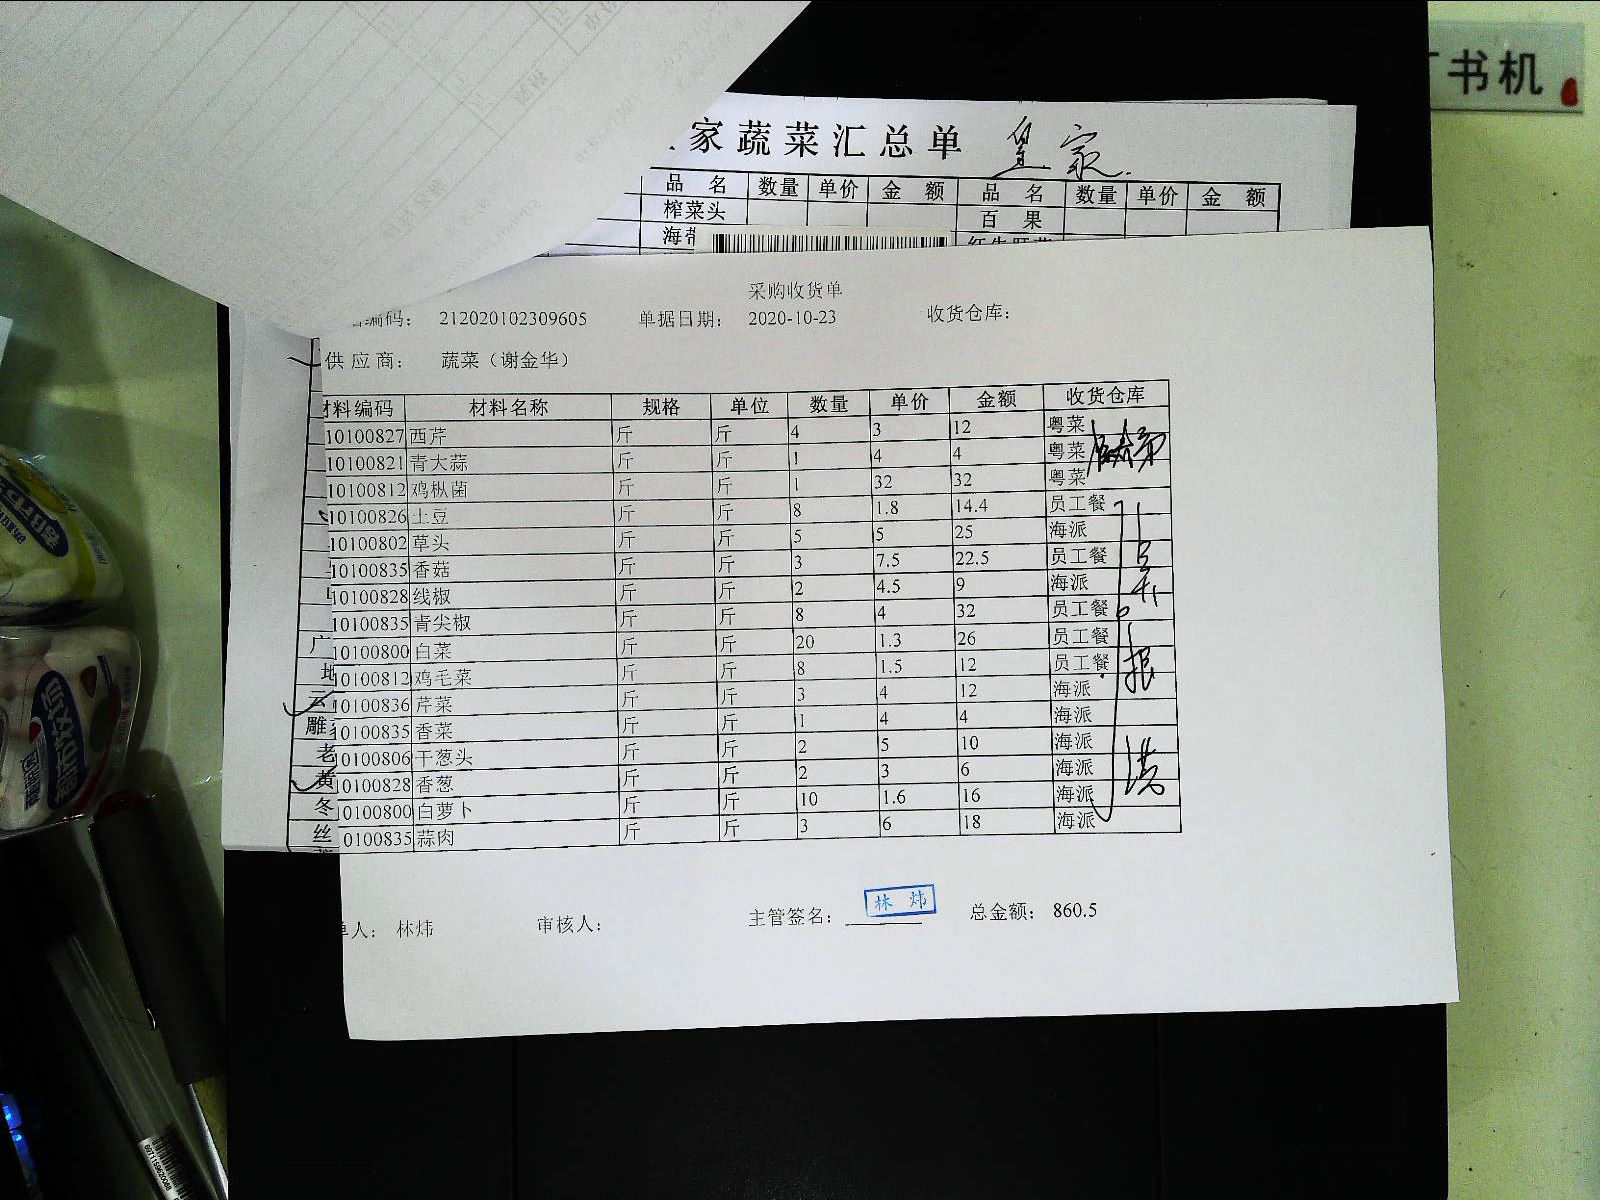 书机
家蔬菜汇总单 皇家.
品 名 数量 单价 金 额 品 名 数量 单价 金 额
榨菜头 百 果
海带
采购收货单
编码: 212020102309605 单据日期: 2020-10-23 收货仓库:
供应商: 蔬菜（谢金华）
材料编码 材料名称 规格 单位 数量 单价 金额 收货仓库
10100827 西芹 斤 斤 4 3 12 粤菜
10100821 青大蒜 斤 斤 1 4 4 粤菜
10100812 鸡枞菌 斤 斤 1 32 32 粤菜
10100826 土豆 斤 斤 8 1.8 14.4 员工餐
10100802 草头 斤 斤 5 5 25 海派
10100835 香菇 斤 斤 3 7.5 22.5 员工餐
10100828 线椒 斤 斤 2 4.5 9 海派
10100835 青尖椒 斤 斤 8 4 32 员工餐
广 10100800 白菜 斤 斤 20 1.3 26 员工餐
地 10100812 鸡毛菜 斤 斤 8 1.5 12 员工餐
云 10100836 芹菜 斤 斤 3 4 12 海派
雕 10100835 香菜 斤 斤 1 4 4 海派
老 10100806 干葱头 斤 斤 2 5 10 海派
黄 10100828 香葱 斤 斤 2 3 6 海派
冬 10100800 白萝卜 斤 斤 10 1.6 16 海派
丝 0100835 蒜肉 斤 斤 3 6 18 海派
单人: 林炜 审核人: 主管签名: 林炜 总金额: 860.5